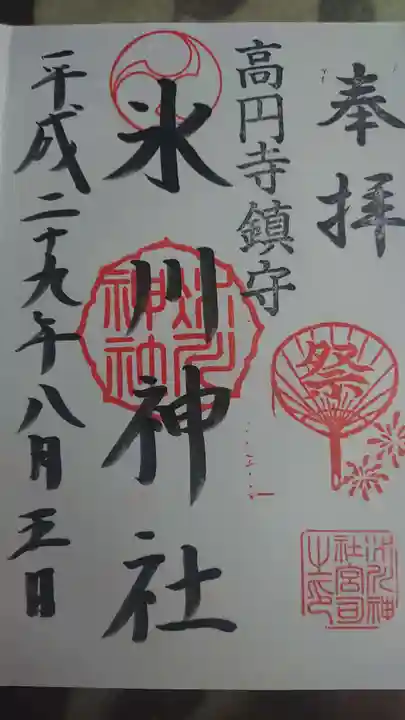 奉拝
高円寺鎮守
氷川神社
平成二十九年八月五日
祭
氷川神社
氷川神社宮司之印